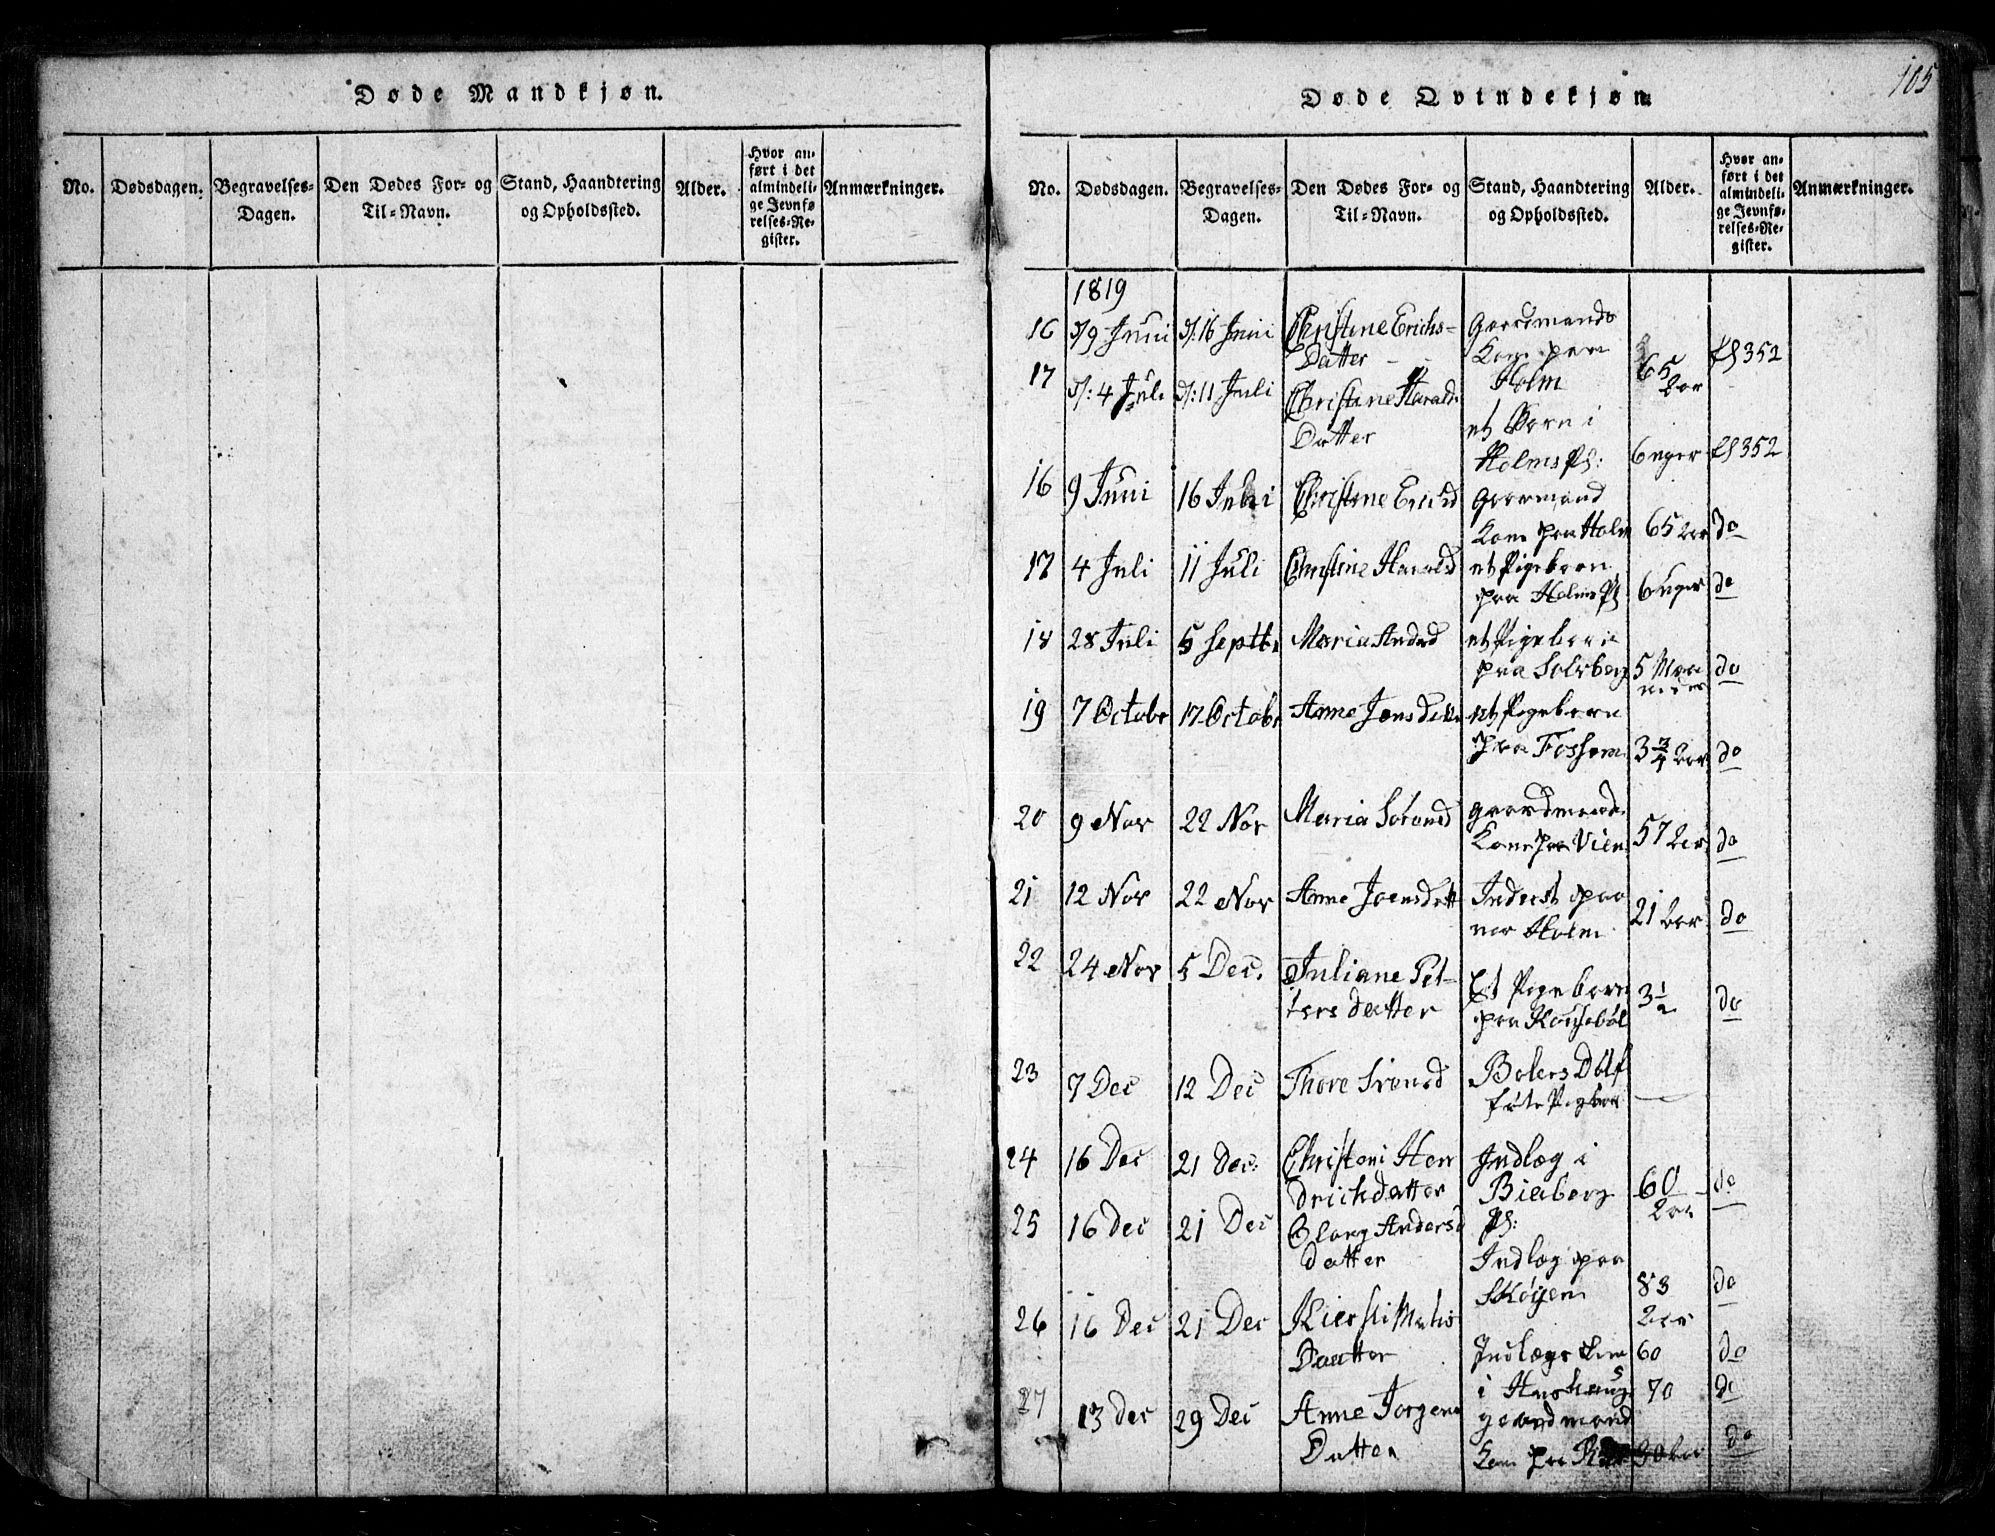 105
Døde Mandkjøn.
No.
Dødsdagen.
Begravelses-
Dagen.
Den Dødes For- og
Til-Navn.
Stand, Haandtering
og Opholdssted.
Alder.
Hvor an-
ført i det
almindeli-
ge Jevnfø-
relses-Re-
gister.
Anmærkninger.
Døde Qvindekjøn
No.
Dødsdagen.
Begravelses-
Dagen.
Den Dødes For- og
Til-Navn.
Stand, Haandtering
og Opholdssted.
Alder.
Hvor an-
ført i det
almindeli-
ge Jevnfø-
relses-Re-
gister.
Anmærkninger.
1819
16 9 Juni 16 Juni Christine Erichs- Gaardmands
Datter Kone paa
Holm 65 Aar 352
17 4 Jul. 11 Juli Christine Harald
Datter et Barn i
Holms Pl: 6 uger 352
16 9 Juni 16 Juni Christine Ericsd Gaarmand
Kone paa Holm 65 Aar do
17 4 Juli 11 Juli Christine Haralsd et Pigebarn
paa Holms Pl 6 uger do
18 28 Juli 5 Septb Maria Andsd et Pigebarn
paa Solsberg 5 Maa
neder do
19 7 Octobr 17 Octobr Anne Jensdatter et Pigebarn
paa Fossem 3 3/4 Aar do
20 9 Nov 22 Nov Maria Sørensd gaardmands
Kone paa Vien 57 Aar do
21 12 Nov 22 Nov Anne Joensdatt Inderst paa
Holm 21 Aar do
22 24 Nov 5 Dec. Juliane Pet-
ters datter Et Pigebarn
paa 3 1/2 do
23 7 Dec 12 Dec Thore Svensd Bolers
Pigebarn
24 16 Dec 21 Dec: Christeni Hen
drichdatter Indlæg i
Bieberg
Pl: 60
Aar do
25 16 Dec 21 Dec Anders
datter Indlæg paa
Skøyen 83
Aar do
26 16 Dec 21 Dec Kiersti Mathis
Daatter Indlægs 60 do
i 70 do
27 13 Dec 29 Dec Anne Jorgens
Datter gaardmand
Kone paa do